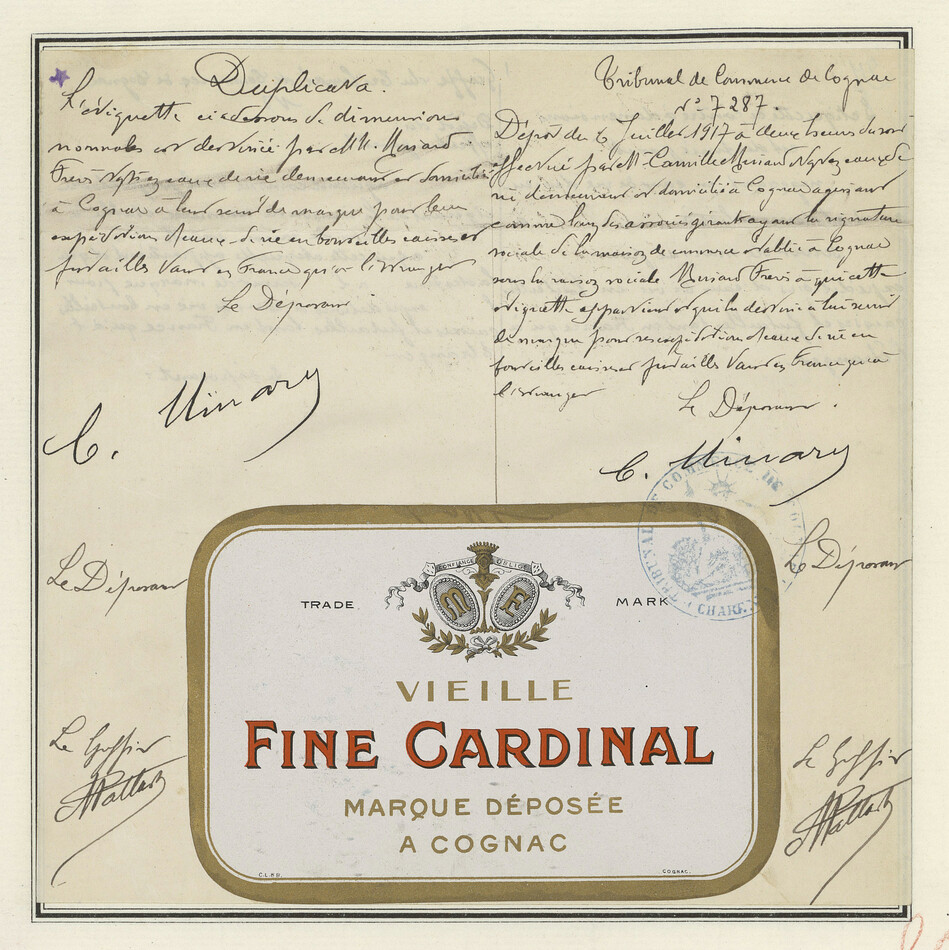 Duplicata.
L'étiquette ci dessous de dimensions
normales est destinée par MM. Minard
Frères Ngts en eaux de vie demeurant et domiciliés
à Cognac à leur servir de marque pour leur
expédition d'eaux-de-vie en bouteilles caisses et
futailles tant en France qu'à l'étranger
Le Déposant
C. Minard
Le Déposant
Le Greffier
Tribunal de Commerce de Cognac
N° 7287.
Dépôt du 6 Juillet 1917 à deux heures du soir
effectué par M. Camille Minard Ngt en eaux de
vie demeurant et domicilié à Cognac agissant
comme l'un des associés gérants ayant la signature
sociale de la maison de commerce établie à Cognac
sous la raison sociale Minard Frères à qui cette
étiquette appartient et qui la destine à lui servir
de marque pour ses expéditions d'eaux de vie en
bouteilles caisses et futailles tant en France qu'à
l'étranger
Le Déposant.
C. Minard
Le Déposant
Le Greffier
TRIBUNAL DE COMMERCE DE
CHAR
CONFIANCE OBLIGE
M F
TRADE MARK
VIEILLE
FINE CARDINAL
MARQUE DÉPOSÉE
A COGNAC
COGNAC.